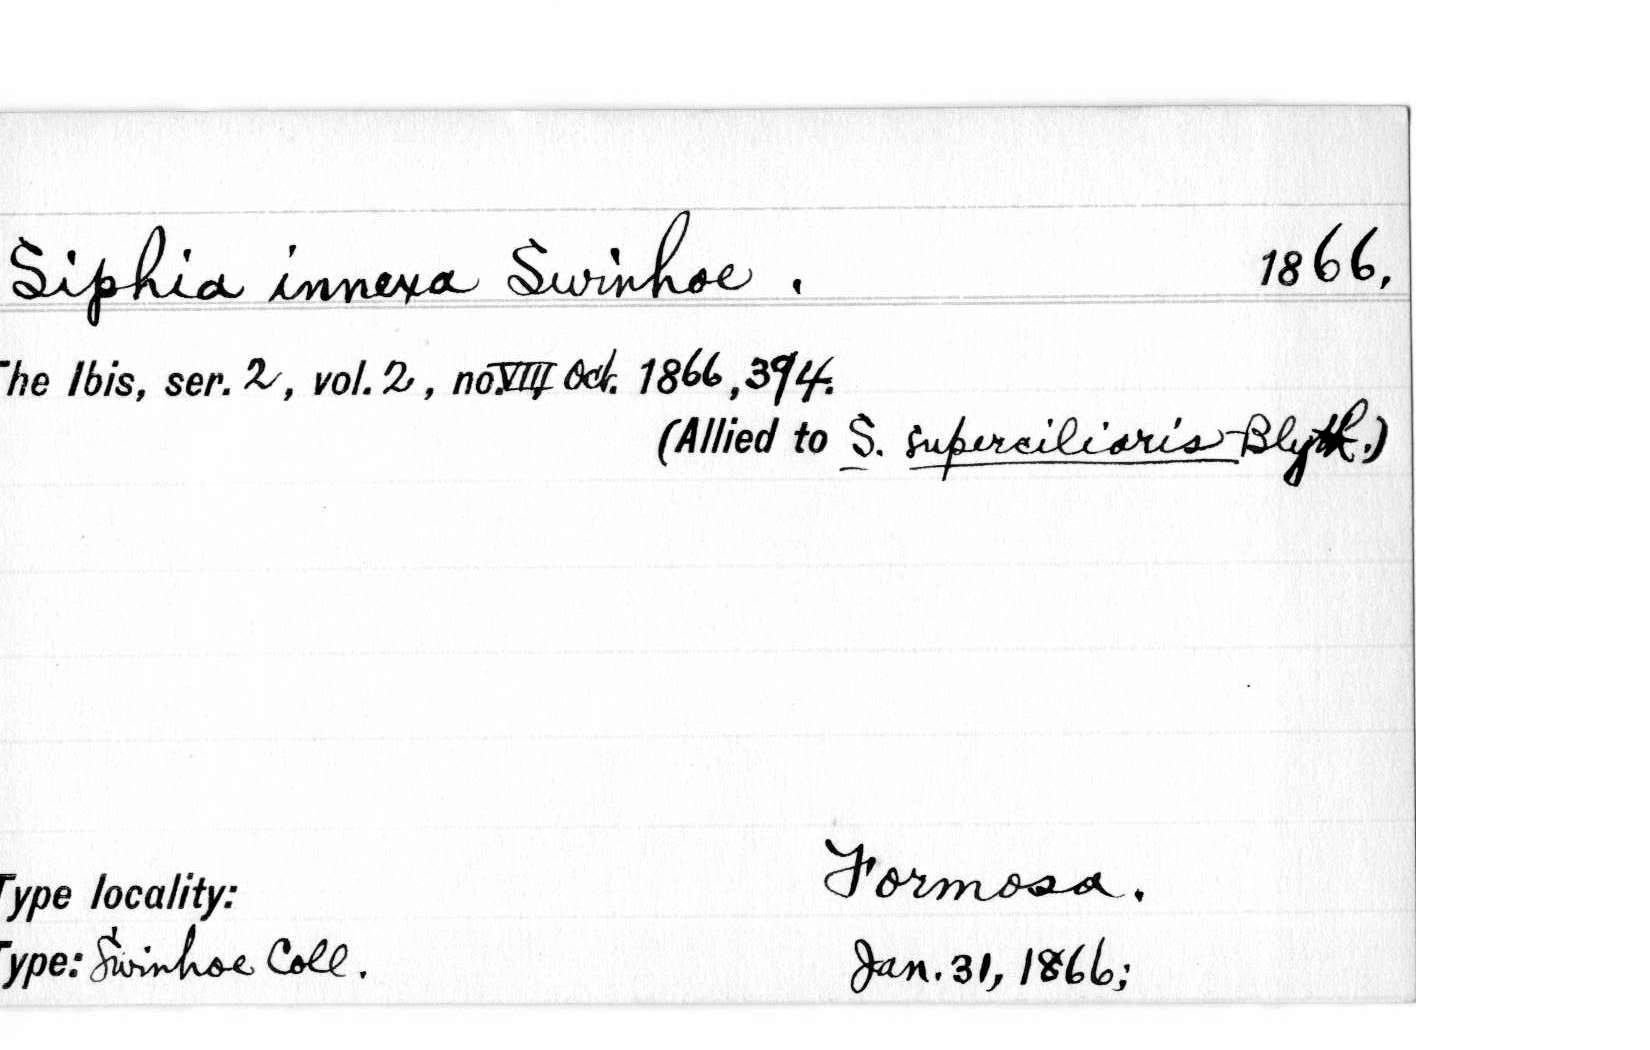 Siphia innexa Swinhoe . 1866,
The Ibis, ser. 2, vol. 2, no. VIII, Oct. 1866, 394.
(Allied to S. superciliaris Blyth.)
Type locality: Formosa.
Type: Swinhoe Coll. Jan. 31, 1866;